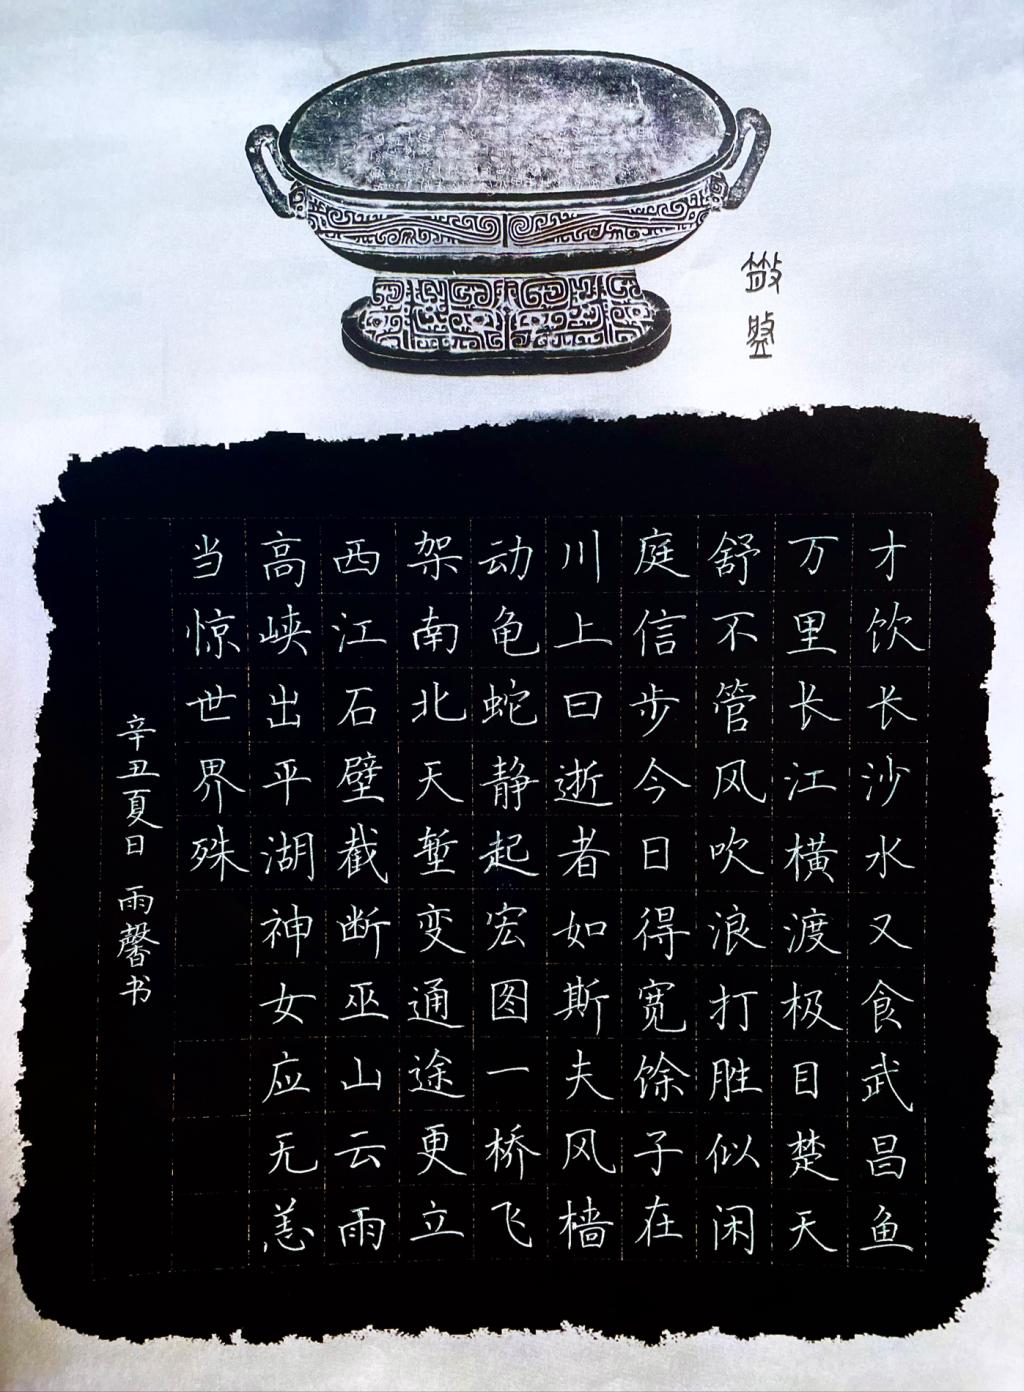 才饮长沙水又食武昌鱼
万里长江横渡极目楚天
舒不管风吹浪打胜似闲
庭信步今日得宽馀子在
川上曰逝者如斯夫风樯
动龟蛇静起宏图一桥飞
架南北天堑变通途更立
西江石壁截断巫山云雨
高峡出平湖神女应无恙
当惊世界殊
辛丑夏日 雨馨书